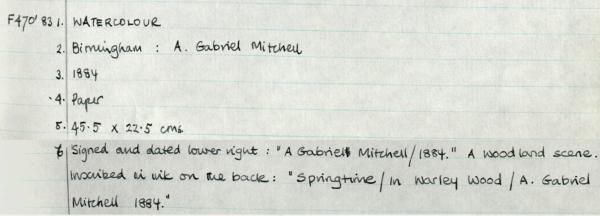 F470'83 1. WATERCOLOUR
2. Birmingham : A. Gabriel Mitchell
3. 1884
4. Paper
5. 45.5 x 22.5 cms
6 Signed and dated lower right : "A Gabriel Mitchell/1884." A woodland scene.
Inscribed in ink on the back : "Springtime/In Warley Wood/A. Gabriel
Mitchell 1884."